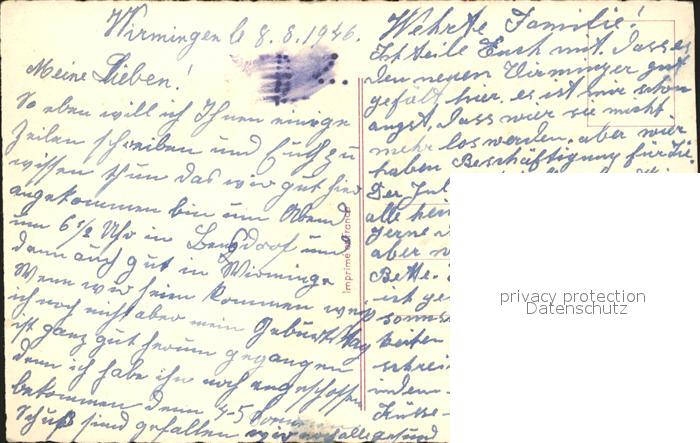 Wirmingen le 8.8.1946.
Meine Lieben!
So eben will ich Ihnen einige
Zeilen schreiben und Euch zu
wissen thun das wir gut hier
angekommen bin um Abend
um 6 1/2 Uhr in Bensdorf und
dann auch gut in Wirminge
Wenn wir heim kommen weiß
ich noch nicht aber mein Geburtstag
ist ganz gut herum gegangen
denn ich habe ihn noch angeschossen
bekommen denn 4-5
Schuß sind gefallen wir alle gesund
Imprimé en France
Wehrte Familie!
Ich teile Euch mit, dass es
den neuen Virminger gut
gefält hier. es ist mir schon
angst, dass wier sie nicht
mehr los werden, aber wier
haben Beschäftigung für die
Der Jul
alle hei
gerne
aber n
Bette.
ist ge
sonns
beiten
schrei
inden
Küsse
privacy protection
Datenschutz